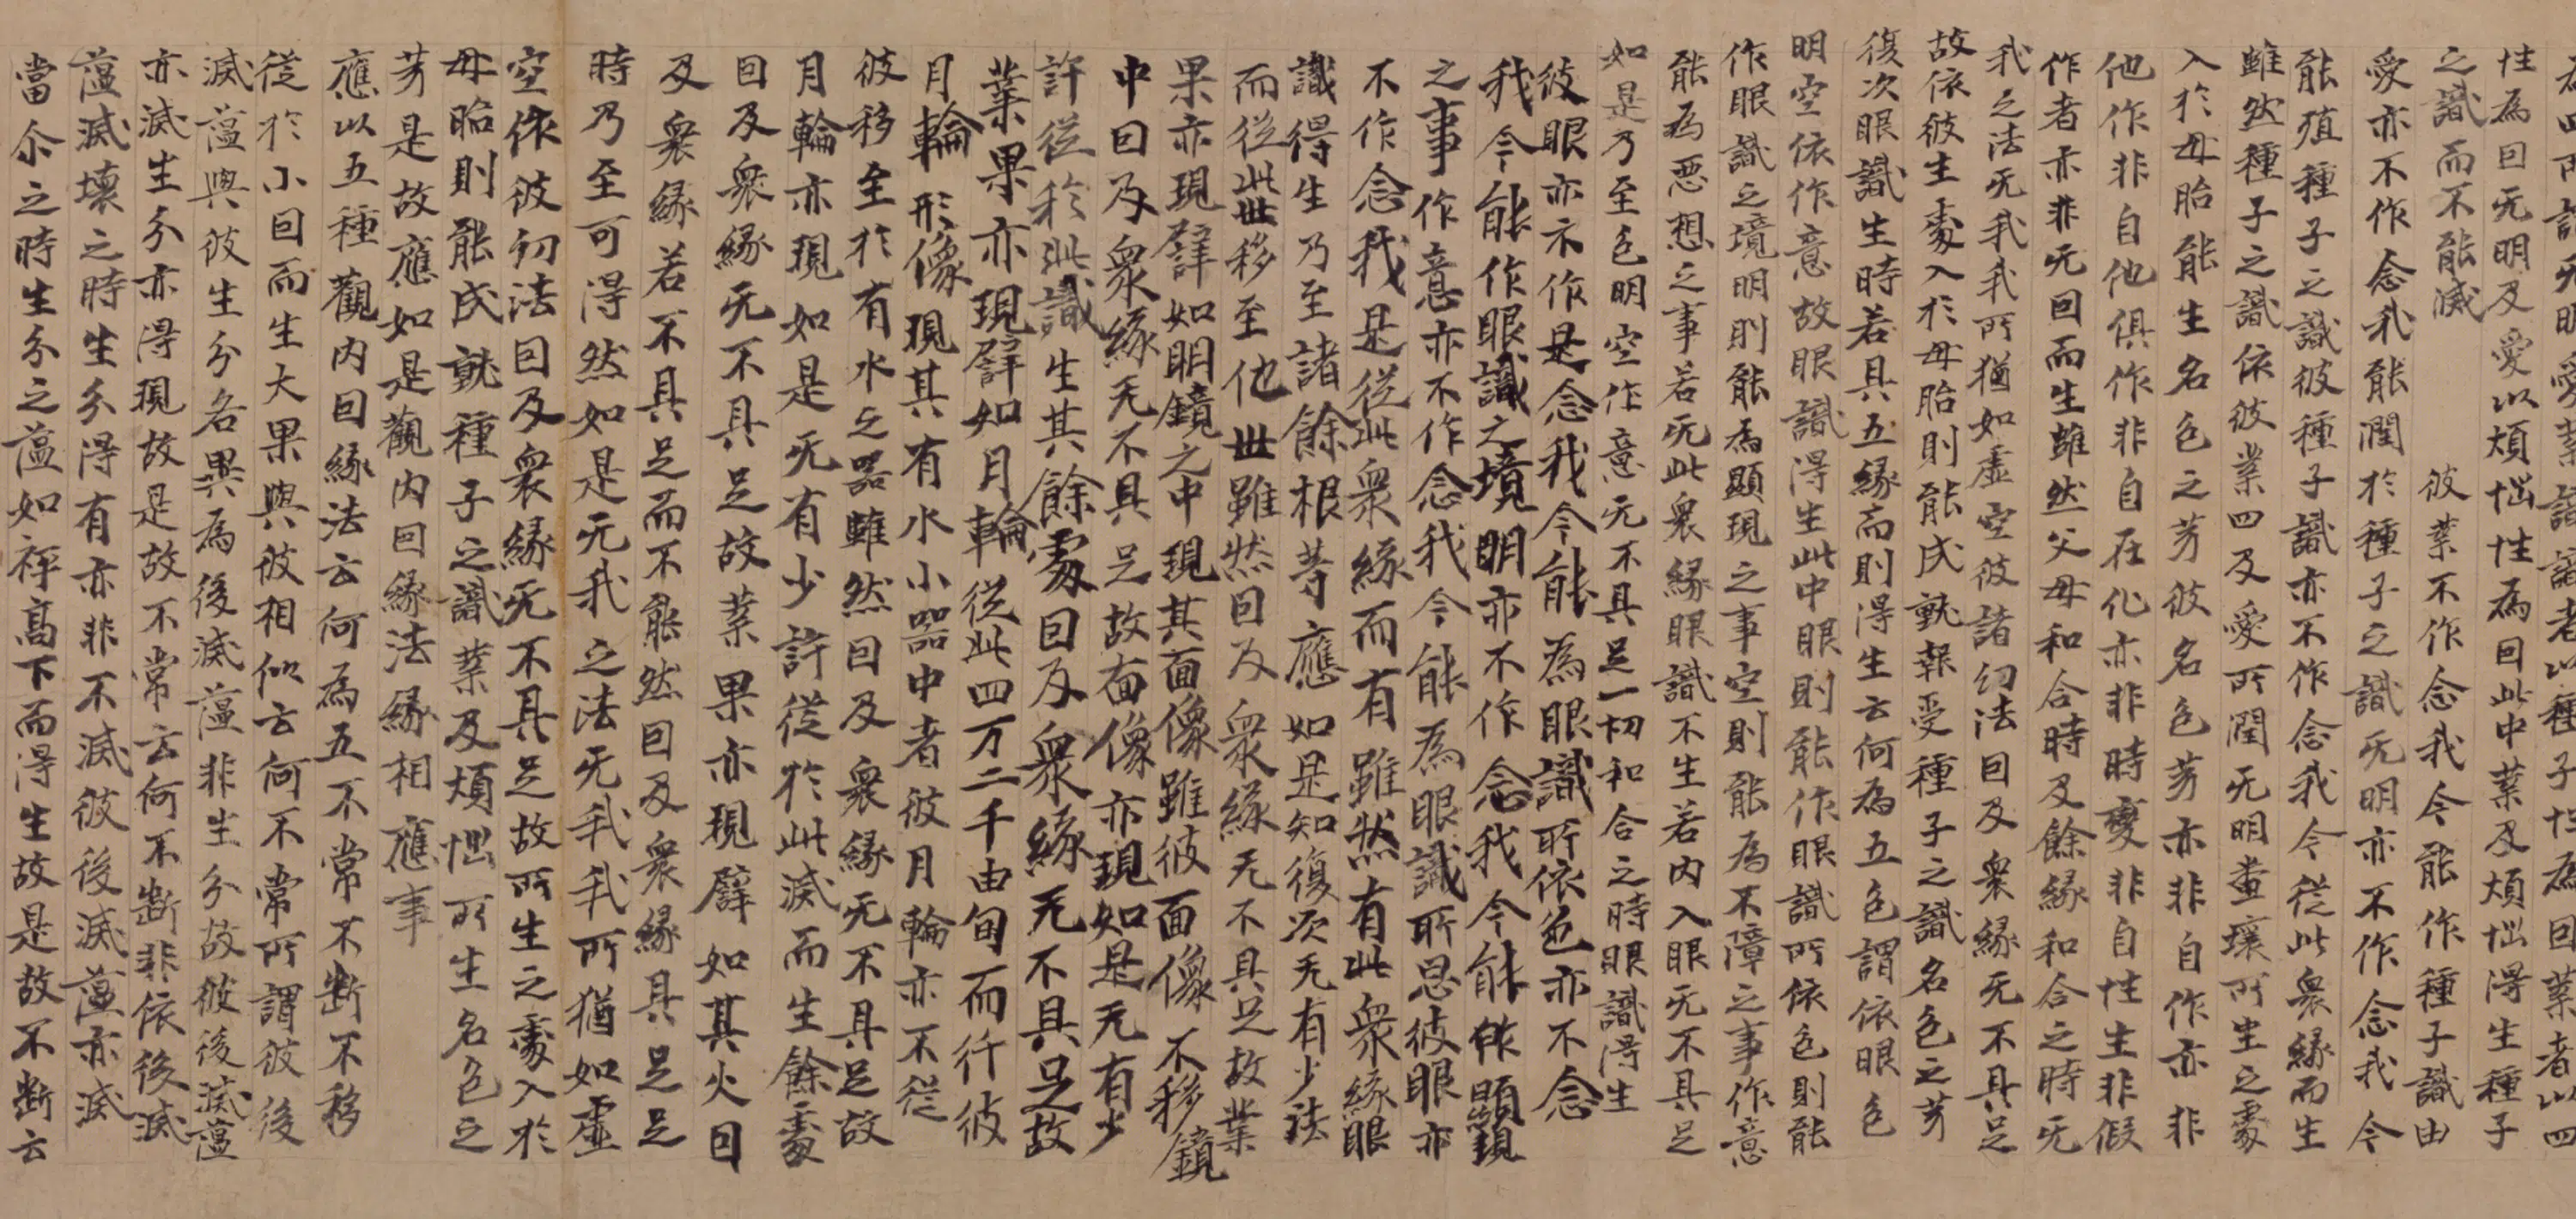 為四所謂无明愛業識識者以種子性為因業者以田
性為因无明及愛以煩惱性為因此中業及煩惱得生種子
之識而不能滅 彼業不作念我今能作種子識由
愛亦不作念我能潤於種子之識无明亦不作念我今
能殖種子之識彼種子識亦不作念我今從此眾緣而生
雖然種子之識依彼業田及愛所潤无明糞壤所生之處
入於母胎能生名色之芽彼名色芽亦非自作亦非
他作非自他俱作非自在化亦非時變非自性生非假
作者亦非无因而生雖然父母和合時及餘緣和合之時无
我之法无我我所猶如虛空彼諸幻法因及眾緣无不具足
故依彼生處入於母胎則能成就報受種子之識名色之芽
復次眼識生時若具五緣而則得生云何為五色謂依眼色
明空依作意故眼識得生此中眼則能作眼識所依色則能
作眼識之境明則能為顯現之事空則能為不障之事作意
能為思想之事若无此眾緣眼識不生若內入眼无不具足
如是乃至色明空作意无不具足一切和合之時眼識得生
彼眼亦不作是念我今能為眼識所依色亦不念
我今能作眼識之境明亦不作念我今能作顯現
之事作意亦不作念我今能為眼識所思彼眼亦
不作念我是從此眾緣而有雖然有此眾緣眼
識得生乃至諸餘根等應如是知復次无有少法
而從此世移至他世雖然因及眾緣无不具足故業
果亦現譬如明鏡之中現其面像雖彼面像不移鏡
中因及眾緣无不具足故面像亦現如是无有少
許從於此識生其餘處因及眾緣无不具足故
業果亦現譬如月輪從此四万二千由旬而行彼
月輪形像現其有水小器中者彼月輪亦不從
彼移至於有水之器雖然因及眾緣无不具足故
月輪亦現如是无有少許從於此滅而生餘處
因及眾緣无不具足故業果亦現譬如其火因
及眾緣若不具足而不能然因及眾緣具足足
時乃至可得然如是无我之法无我我所猶如虛
空依彼幻法因及眾緣无不具足故所生之處入於
母胎則能成就種子之識業及煩惱所生名色之
芽是故應如是觀內因緣法緣相應事
應以五種觀內因緣法云何為五不常不斷不移
從於小因而生大果與彼相似云何不常所謂彼後
滅蘊與彼生分各異為後滅蘊非生分故彼後滅蘊
亦滅生分亦得現故是故不常云何不斷非依後滅
蘊滅壞之時生分得有亦非不滅彼後滅蘊亦滅
當尒之時生分之蘊如秤高下而得生故是故不斷云